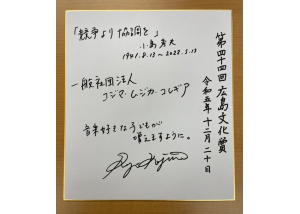 第四十四回 広島文化賞
令和五年 十二月 二十日
「競争より協調を」
小島秀夫
1941.8.13～2022.5.13
一般社団法人
コジマ・ムジカ・コレギア
音楽好きな子どもが
増えますように。